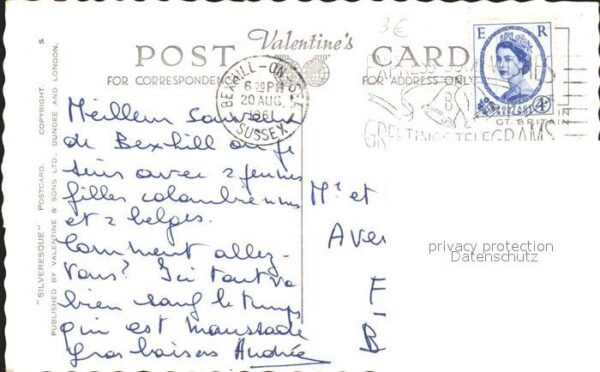 3€
Valentine's
POST CARD
FOR CORRESPONDENCE
FOR ADDRESS ONLY
E R
4D
BEXHILL-ON-SEA
6 30 PM
20 AUG
1961
SUSSEX
GREETINGS TELEGRAMS
GT BRITAIN
"SILVERESQUE" POSTCARD. COPYRIGHT. S
PUBLISHED BY VALENTINE & SONS LTD., DUNDEE AND LONDON.
Meilleur souvenir
de Bexhill où je
suis avec 2 jeunes
filles colombiennes
et 2 belges.
Comment allez-
vous? Ici tout va
bien sauf le temps
qui est maussade
Gros baisers Andrée
Mr et
Aver
F
B
privacy protection
Datenschutz